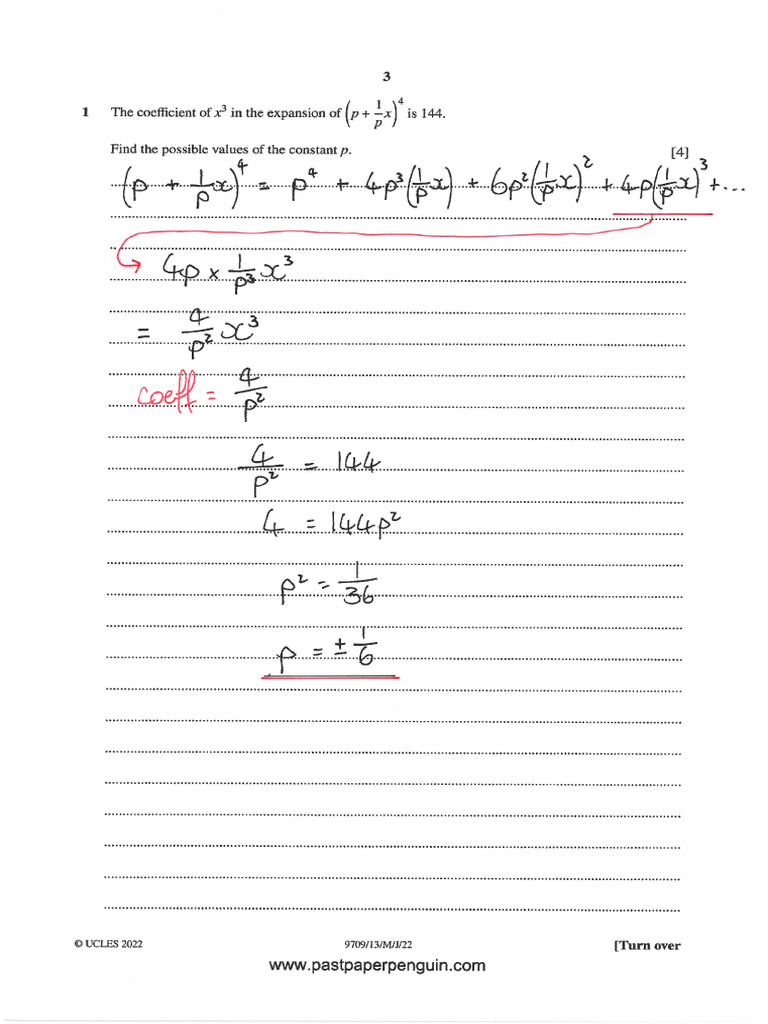 3
1 The coefficient of x³ in the expansion of (p + 1/p x)⁴ is 144.
Find the possible values of the constant p. [4]
(p + 1/p x)⁴ = p⁴ + 4p³(1/p x) + 6p²(1/p x)² + 4p(1/p x)³ + ...
4p × 1/p³ x³
= 4/p² x³
coeff = 4/p²
4/p² = 144
4 = 144p²
p² = 1/36
p = ± 1/6
© UCLES 2022 9709/13/M/J/22 [Turn over
www.pastpaperpenguin.com